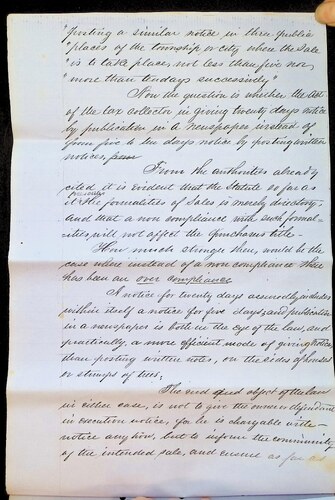 "posting a similar notice in three public
"places of the township or city where the sale
"is to take place, not less than five nor
"more than ten days successively"
Now the question is whether the act
of the tax collector in giving twenty days notice
by publication in a newspaper instead of
from five to ten days notice by posting written
notices,
From the authorities already
cited, it is evident that the Statute so far as
the formalities of Sales is merely directory,
and that a non compliance with such formal-
ities will not affect the purchasers title—
How much stronger then, would be the
case where instead of a non compliance there
has been an over compliance
A notice for twenty days assuredly includes
within itself a notice for five days, and publication
in a newspaper is both in the eye of the law, and
practically, a more efficient mode of giving notice
than posting written notes, on the sides of houses
or stumps of trees,
The end and object of the law
in either case, is not to give the owner or defendant
in execution notice, for he is chargeable with
notice any how, but to inform the community
of the intended sale, and ensure as far as